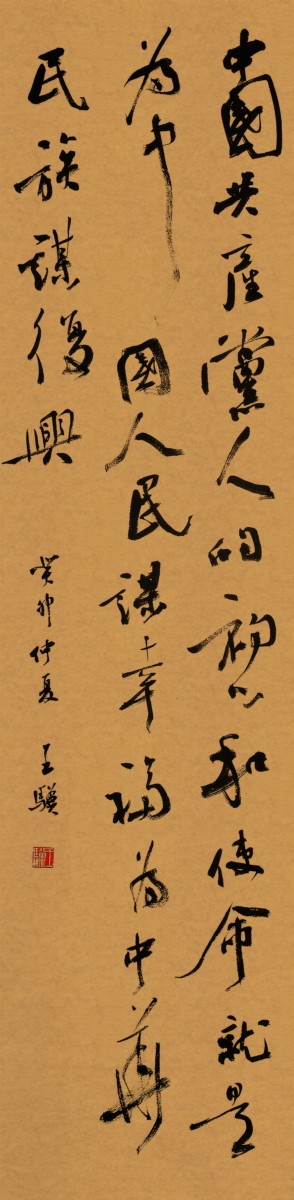 中國共產黨人的初心和使命就是
為中國人民謀幸福為中華
民族謀復興
癸卯仲夏 王驥